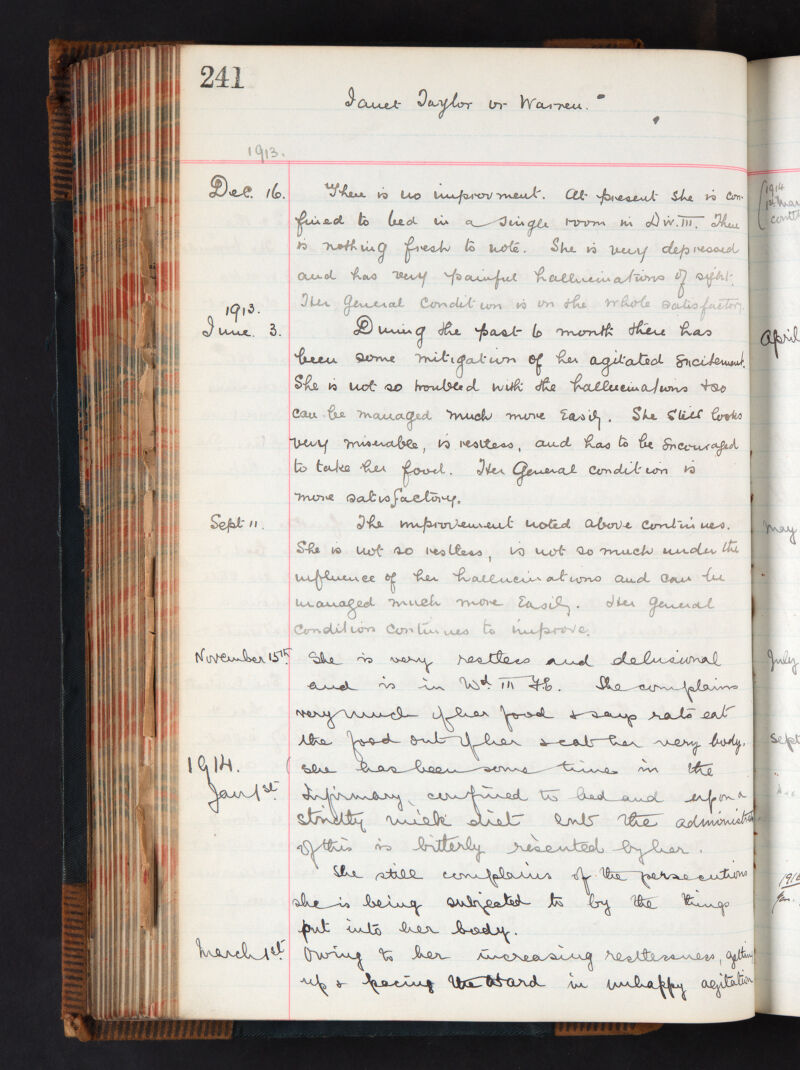 241
Janet Taylor or Warren.
1913.
Dec. 16. There is no improvment. At present she is con-
fined to bed in a single room in Div. III. There
is nothing fresh to note. She is very depressed
and has very painful hallucinations of sight.
Her General condition is on the whole satisfactory.
1913.
June. 3. During the past 6 month there has
been some mitigation of her agitated Excitement.
She is not so troubled with the hallucinations & so
can be managed much more Easily. She still looks
very miserable, is restless, and has to be Encouraged
to take her food. Her General condition is
more satisfactory.
Sept 11. The improvement noted above continues.
She is not so restless, is not so much under the
influence of her hallucinations and can be
managed much more Easily. Her General
condition continues to improve.
November 15th. She is very restless and delusional
and is in Wd. III The complains
very much of her food & says rats eat
the food out of her & eat her very body.
1914. She has been some time in the
Jan 1st. Infirmary, confined to bed and upon a
strictly milk diet but the administra
of this is bitterly resented by her.
She still complains of the persecutions
she is being subjected to by the things
put into her body.
March 1st. Owing to her increasing restlessness, getting
up & pacing the Ward in unhappy agitation
1914
1st Mar
contd
April
May
July
Sept